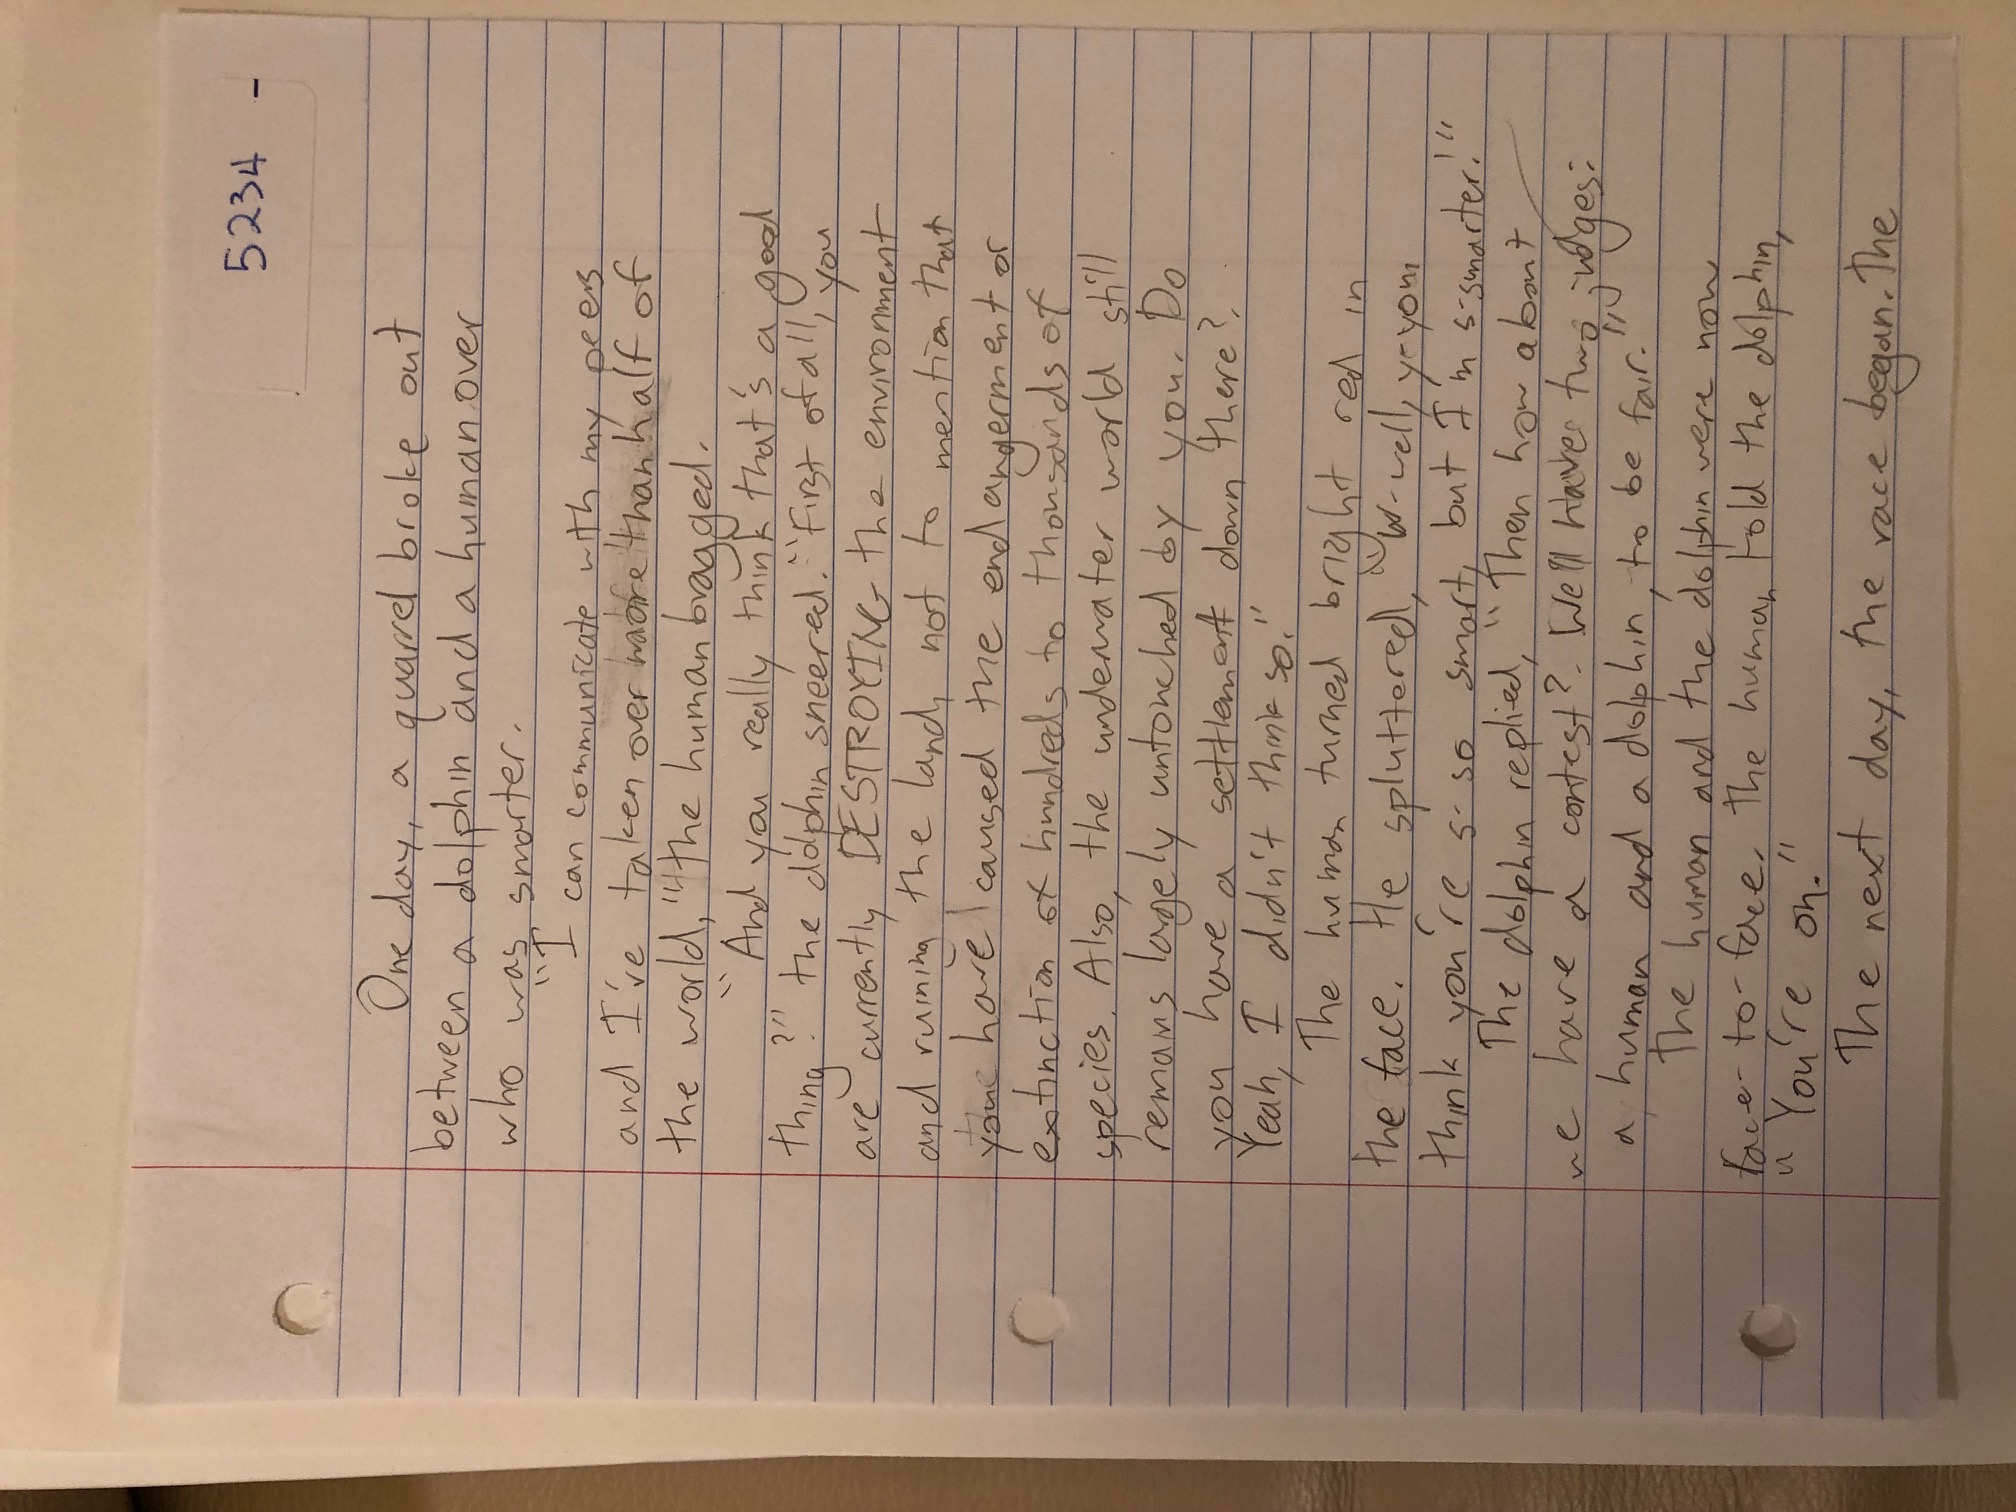 5234 -
One day, a quarrel broke out
between a dolphin and a human over
who was smarter.
"I can communicate with my peers
and I've taken over more than half of
the world," the human bragged.
"And you really think that's a good
thing?" the dolphin sneered. "First of all, you
are currently DESTROYING the environment
and ruining the land, not to mention that
you have caused the endangerment or
extinction of hundreds to thousands of
species. Also, the underwater world still
remains largely untouched by you. Do
you have a settlement down there?
Yeah, I didn't think so."
The human turned bright red in
the face. He spluttered, "W-well, y-you
think you're s-so smart, but I'm s-smarter!"
The dolphin replied, "Then how about
we have a contest? We'll have two judges:
a human and a dolphin, to be fair."
The human and the dolphin were now
face-to-face. The human told the dolphin,
"You're on."
The next day, the race began. The